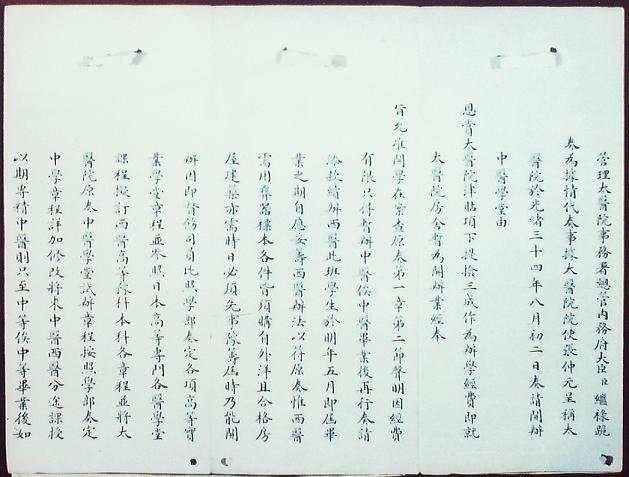 管理太醫院事務署總管內務府大臣臣繼祿跪
奏為據情代奏事據太醫院院使張仲元呈稱太
醫院於光緒三十四年八月初二日奏請開辦
中醫學堂由
恩賞太醫院津貼項下提撥三成作為辦學經費即就
太醫院房舍暫為開辦業經奉
旨允准開學在案查原奏第一章第二節聲明因經費
有限只得暫辦中醫俟中醫畢業後再行奏請
添款續辦西醫此班學生於明年五月即屆畢
業之期自應妥籌西醫辦法以符原奏惟西醫
需用器標本各件皆須購自外洋且合格房
屋建築亦需時日必須先事籌屆時乃能開
辦因即督飭司員比照學部奏定各項高等實
業學堂章程並參照日本高等專門各醫學堂
課程擬訂西醫高等預科本科各章程並將太
醫院原奏中醫學堂試辦章程按照學部奏定
中學章程詳加修改將來中醫西醫分途課授
以期專精中醫則只至中等俟中等畢業後如